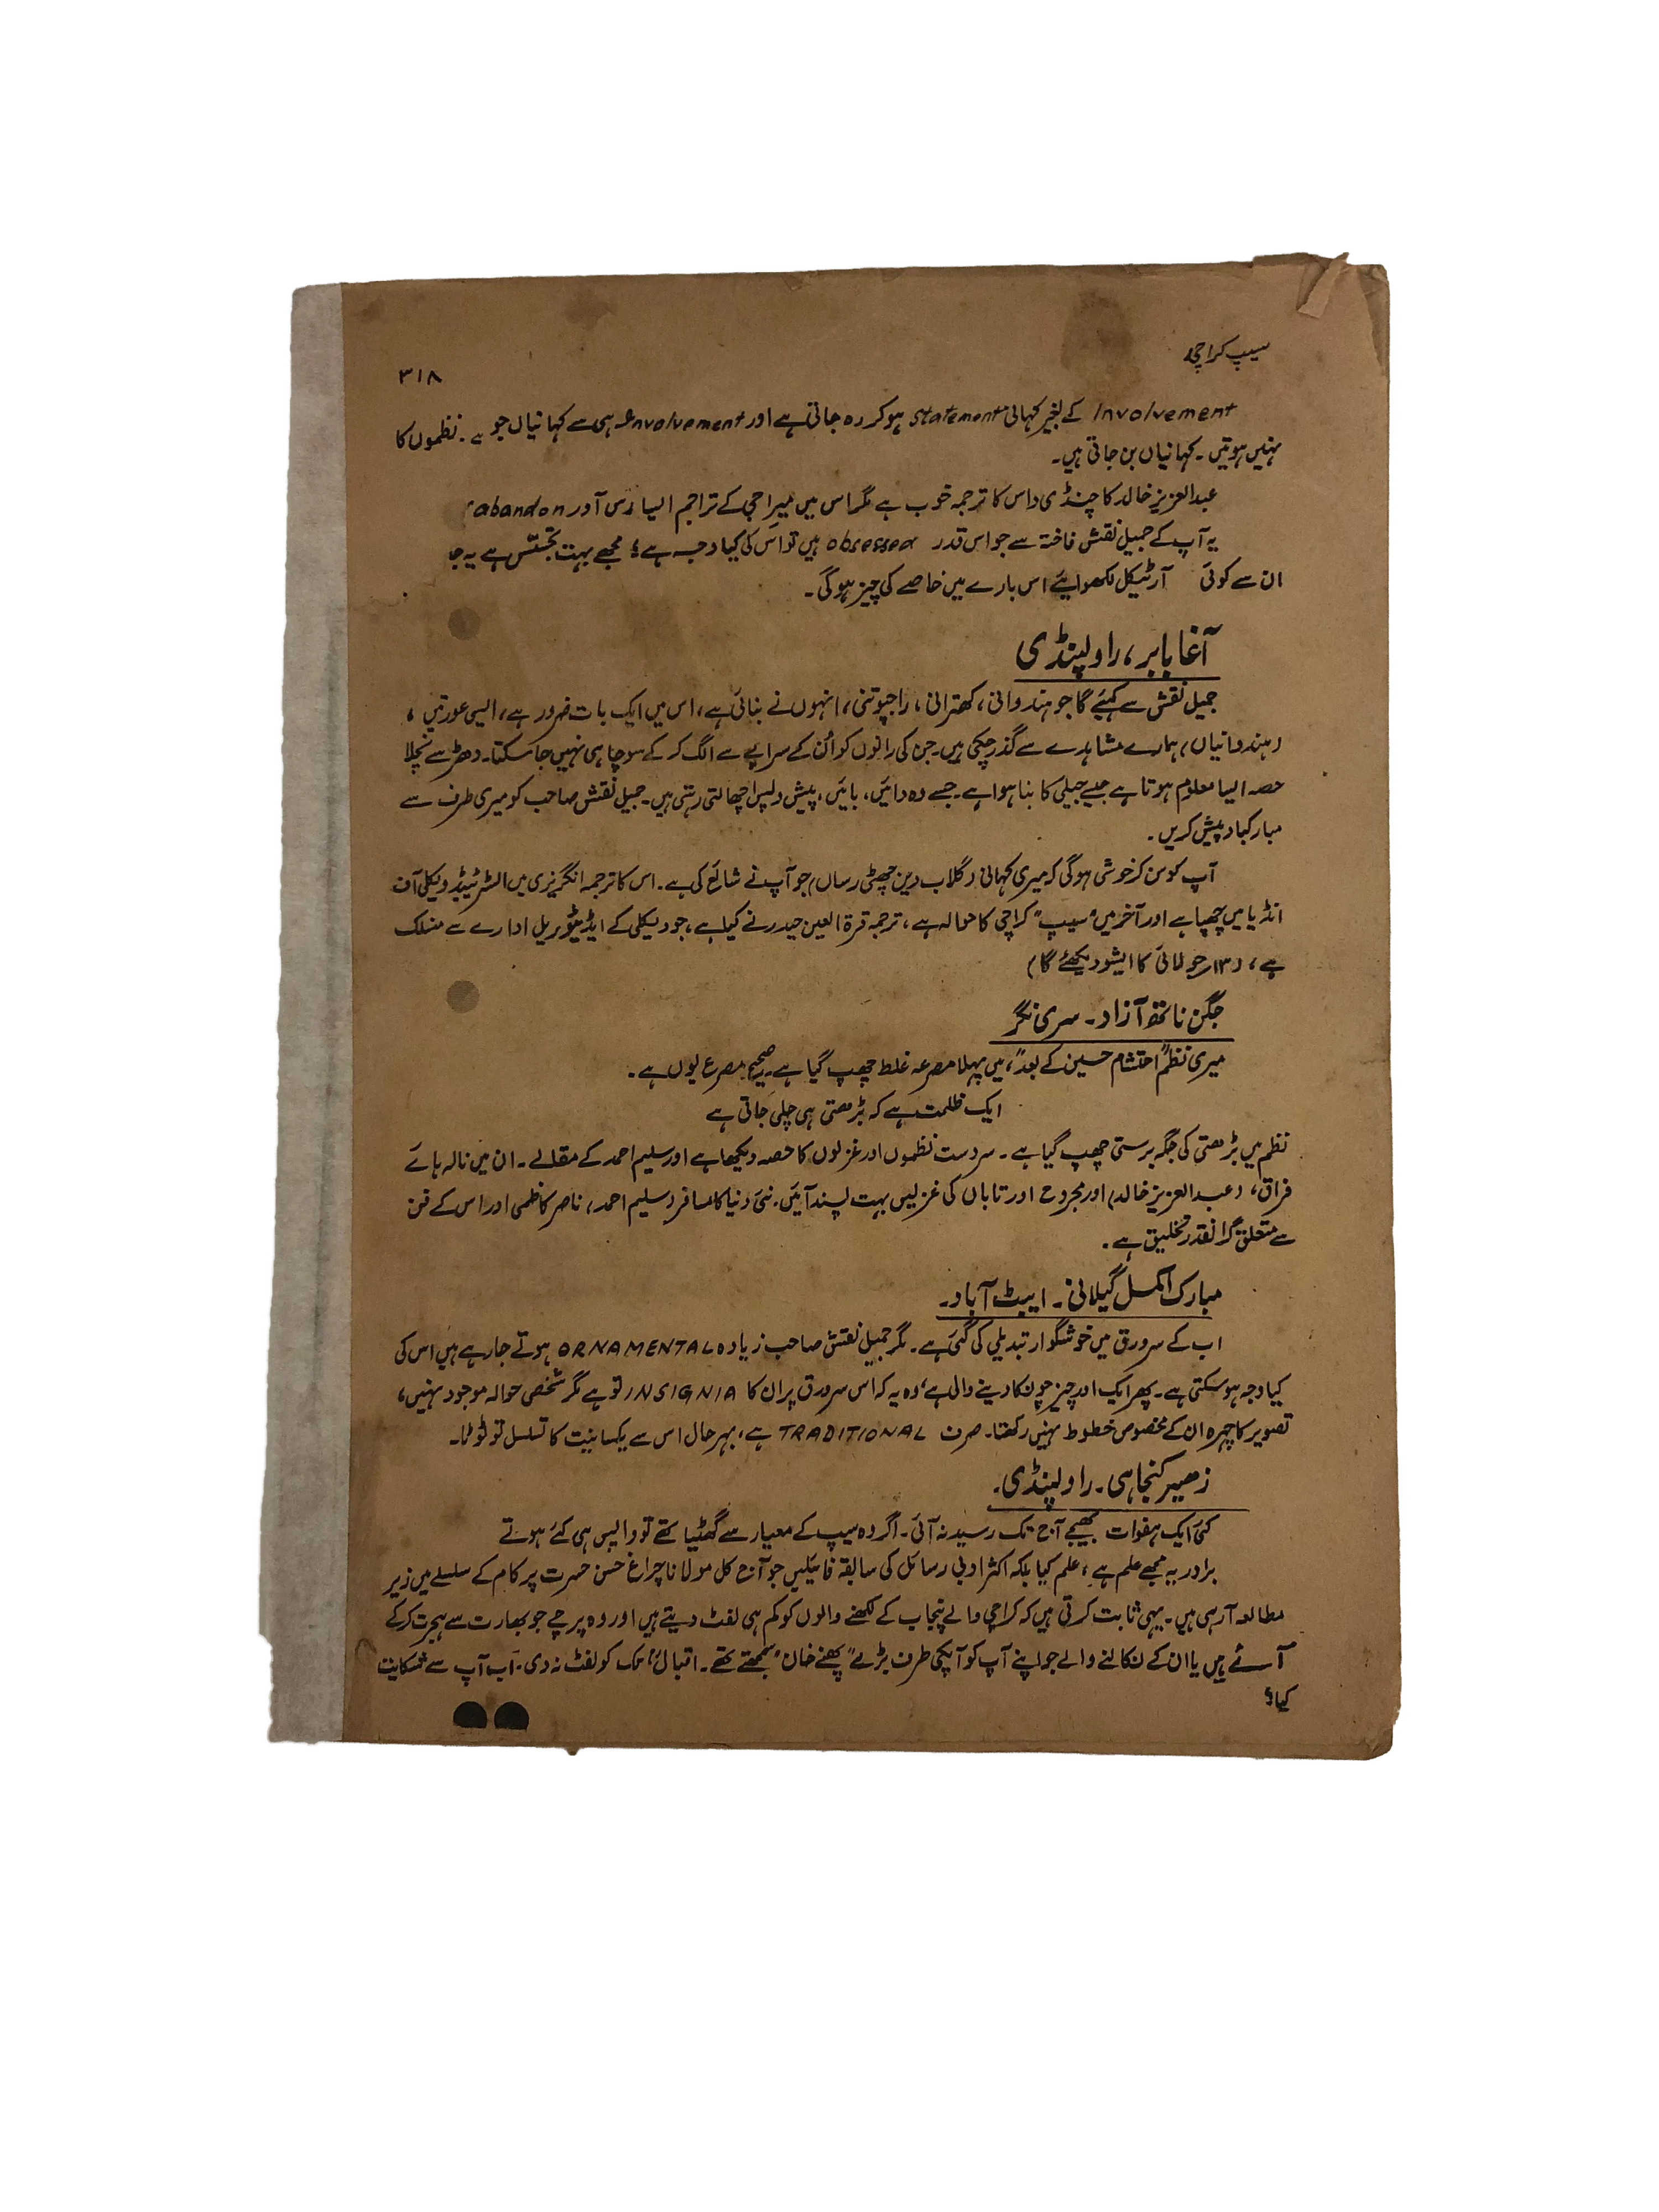 سیپ کراچی
۳۱۸
Involvement کے بغیر کہانی Statement ہو کر رہ جاتی ہے اور Involvement ہی سے کہانیاں جو ہے۔ نظموں کا
نہیں ہوتیں۔ کہانیاں بن جاتی ہیں۔
عبدالعزیز خالد کا چنڈی داس کا ترجمہ خوب ہے مگر اس میں میراجی کے تراجم ایسا رس اور abandon
یہ آپ کے جمیل نقش فاختہ سے جو اس قدر obsessed ہیں تو اس کی کیا وجہ ہے؟ مجھے بہت تجسّس ہے یہ جا
ان سے کوئی آرٹیکل لکھوایئے اس بارے میں خاصے کی چیز ہوگی۔
آغا بابر، راولپنڈی
جمیل نقش سے کہیئے گا جو ہندوانی، کھترانی، راجپوتنی، انہوں نے بنائی ہے، اس میں ایک بات ضرور ہے، ایسی عورتیں،
(ہندوانیاں) ہمارے مشاہدے سے گذر چکی ہیں۔ جن کی رانوں کو اُن کے سراپے سے الگ کر کے سوچا ہی نہیں جا سکتا۔ دھڑ سے نچلا
حصہ ایسا معلوم ہوتا ہے جیسے جیلی کا بنا ہوا ہے۔ جسے وہ دائیں، بائیں، پیش و پس اچھالتی رہتی ہیں۔ جمیل نقش صاحب کو میری طرف سے
مبارکباد پیش کریں۔
آپ کو سن کر خوشی ہوگی کہ میری کہانی (گلاب دین چھٹی رساں) جو آپ نے شائع کی ہے۔ اس کا ترجمہ انگریزی میں السٹریٹیڈ ویکلی آف
انڈیا میں چھپا ہے اور آخر میں "سیپ" کراچی کا حوالہ ہے، ترجمہ قرۃ العین حیدر نے کیا ہے، جو ویکلی کے ایڈیٹوریل ادارے سے منسلک
ہے، (۱۳ر جولائی کا ایشو دیکھئے گا)
جگن ناتھ آزاد۔ سری نگر
میری نظم "احتشام حسین کے بعد"، میں پہلا مصرعہ غلط چھپ گیا ہے۔ صحیح مصرع یوں ہے۔
ایک ظلمت ہے کہ بڑھتی ہی چلی جاتی ہے
نظم میں بڑھتی کی جگہ برستی چھپ گیا ہے۔ سردست نظموں اور غزلوں کا حصہ دیکھا ہے اور سلیم احمد کے مقالے۔ ان میں نالہ ہائے
فراق، (عبدالعزیز خالد) اور مجروح اور تاباں کی غزلیں بہت پسند آئیں۔ نئی دنیا کا مسافر (سلیم احمد) ناصر کاظمی اور اس کے فن
سے متعلق گرانقدر تخلیق ہے۔
مبارک اکمل گیلانی۔ ایبٹ آباد۔
اب کے سرورق میں خوشگوار تبدیلی کی گئی ہے۔ مگر جمیل نقش صاحب زیادہ ORNAMENTAL ہوتے جا رہے ہیں اس کی
کیا وجہ ہو سکتی ہے۔ پھر ایک اور چیز چونکا دینے والی ہے، وہ یہ کہ اس سرورق پر ان کا INSIGNIA تو ہے مگر شخصی حوالہ موجود نہیں،
تصویر کا چہرہ ان کے مخصوص خطوط نہیں رکھتا۔ صرف TRADITIONAL ہے، بہرحال اس سے یکسانیت کا تسلسل تو ٹوٹا۔
زہیر کنجاہی۔ راولپنڈی۔
کئی ایک ہفوات بھیجے آج تک رسید نہ آئی۔ اگر وہ سیپ کے معیار سے گھٹیا تھے تو واپس ہی کئے ہوتے
برادر یہ مجھے علم ہے، علم کیا بلکہ اکثر ادبی رسائل کی سابقہ فائیلیں جو آج کل مولانا چراغ حسن حسرت پر کام کے سلسلے میں زیر
مطالعہ آ رہی ہیں۔ یہی ثابت کرتی ہیں کہ کراچی والے پنجاب کے لکھنے والوں کو کم ہی لفٹ دیتے ہیں اور وہ پرچے جو بھارت سے ہجرت کر کے
آئے ہیں یا ان کے نکالنے والے جو اپنے آپ کو آپکی طرف بڑے "پھنے خان" سمجھتے تھے۔ اقبالؒ تک کو لفٹ نہ دی۔ اب آپ سے شکایت
کیا؟